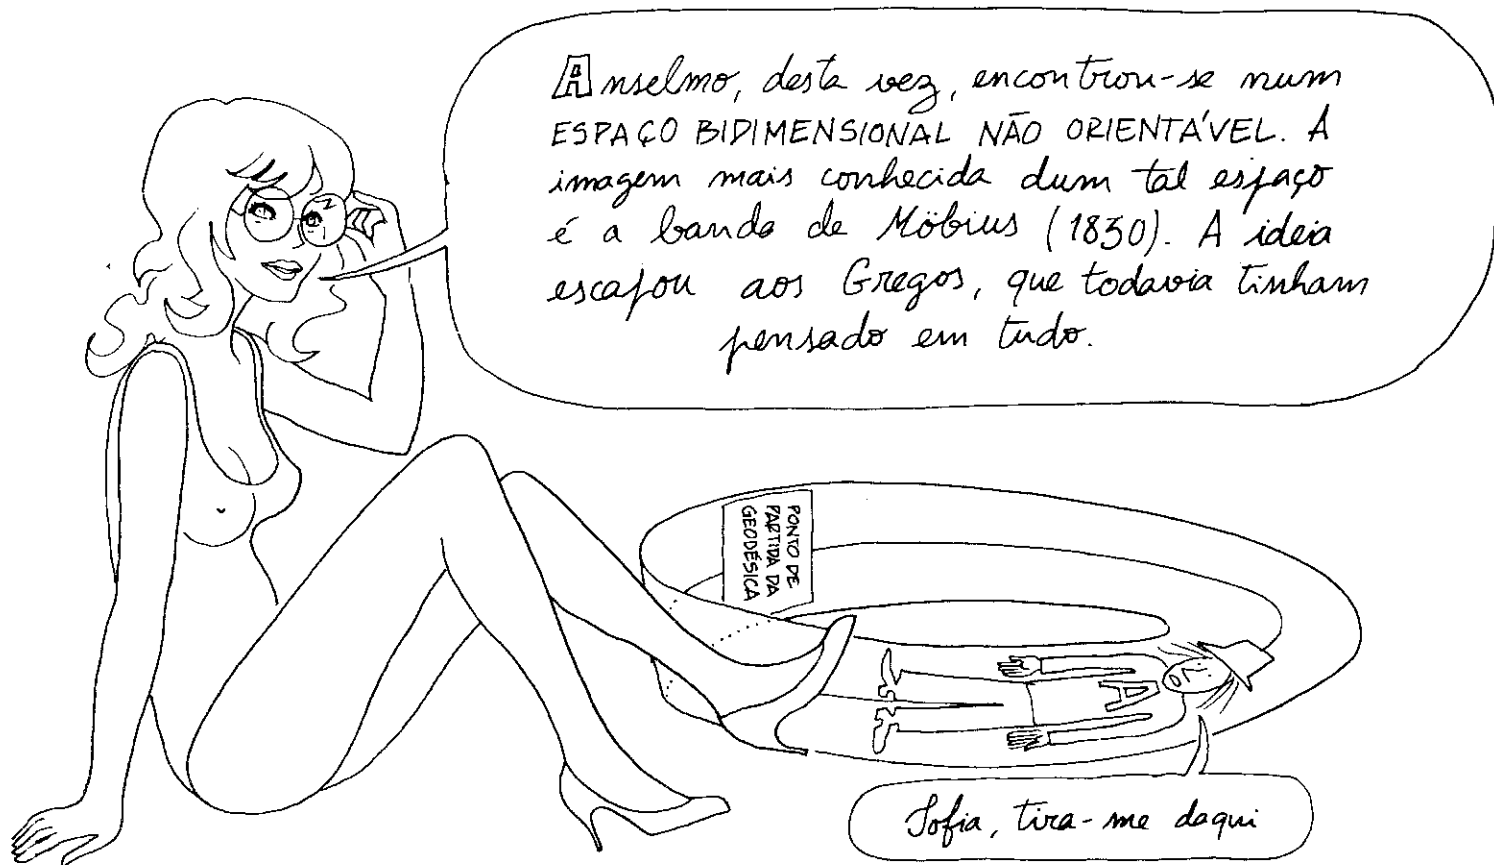 Anselmo, desta vez, encontrou-se num
ESPAÇO BIDIMENSIONAL NÃO ORIENTÁVEL. A
imagem mais conhecida dum tal espaço
é a banda de Möbius (1830). A ideia
escapou aos Gregos, que todavia tinham
pensado em tudo.
PONTO DE
PARTIDA DA
GEODÉSICA
A
Sofia, tira-me daqui